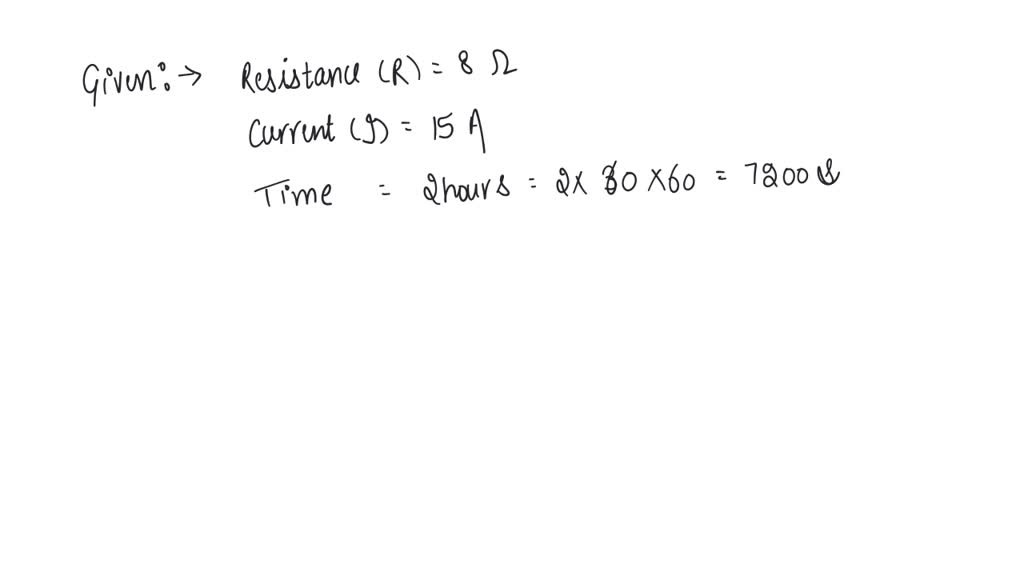 Given:→ Resistance (R) = 8 Ω
Current (I) = 15 A
Time = 2hours = 2X 60 X60 = 7200 s